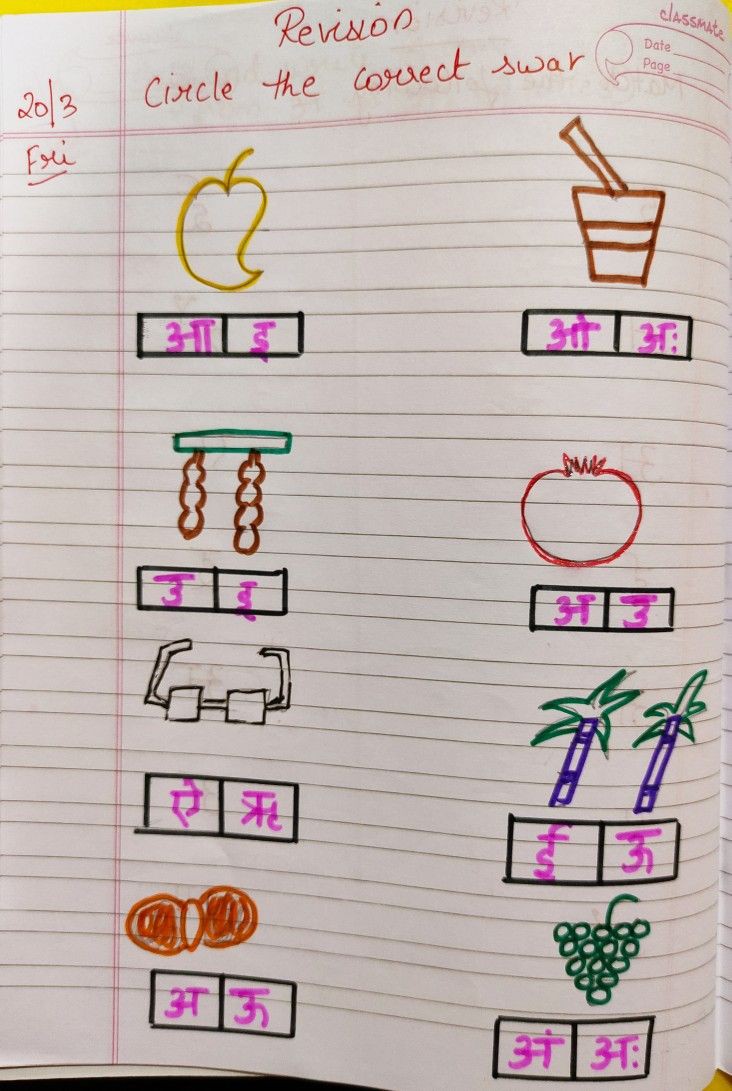 Revision
classmate
Date
Page
Circle the correct swar
20/3
Fri
आ इ
ओ अः
उ इ
अ उ
ऐ ऋ
ई ऊ
अ ऊ
अं अः